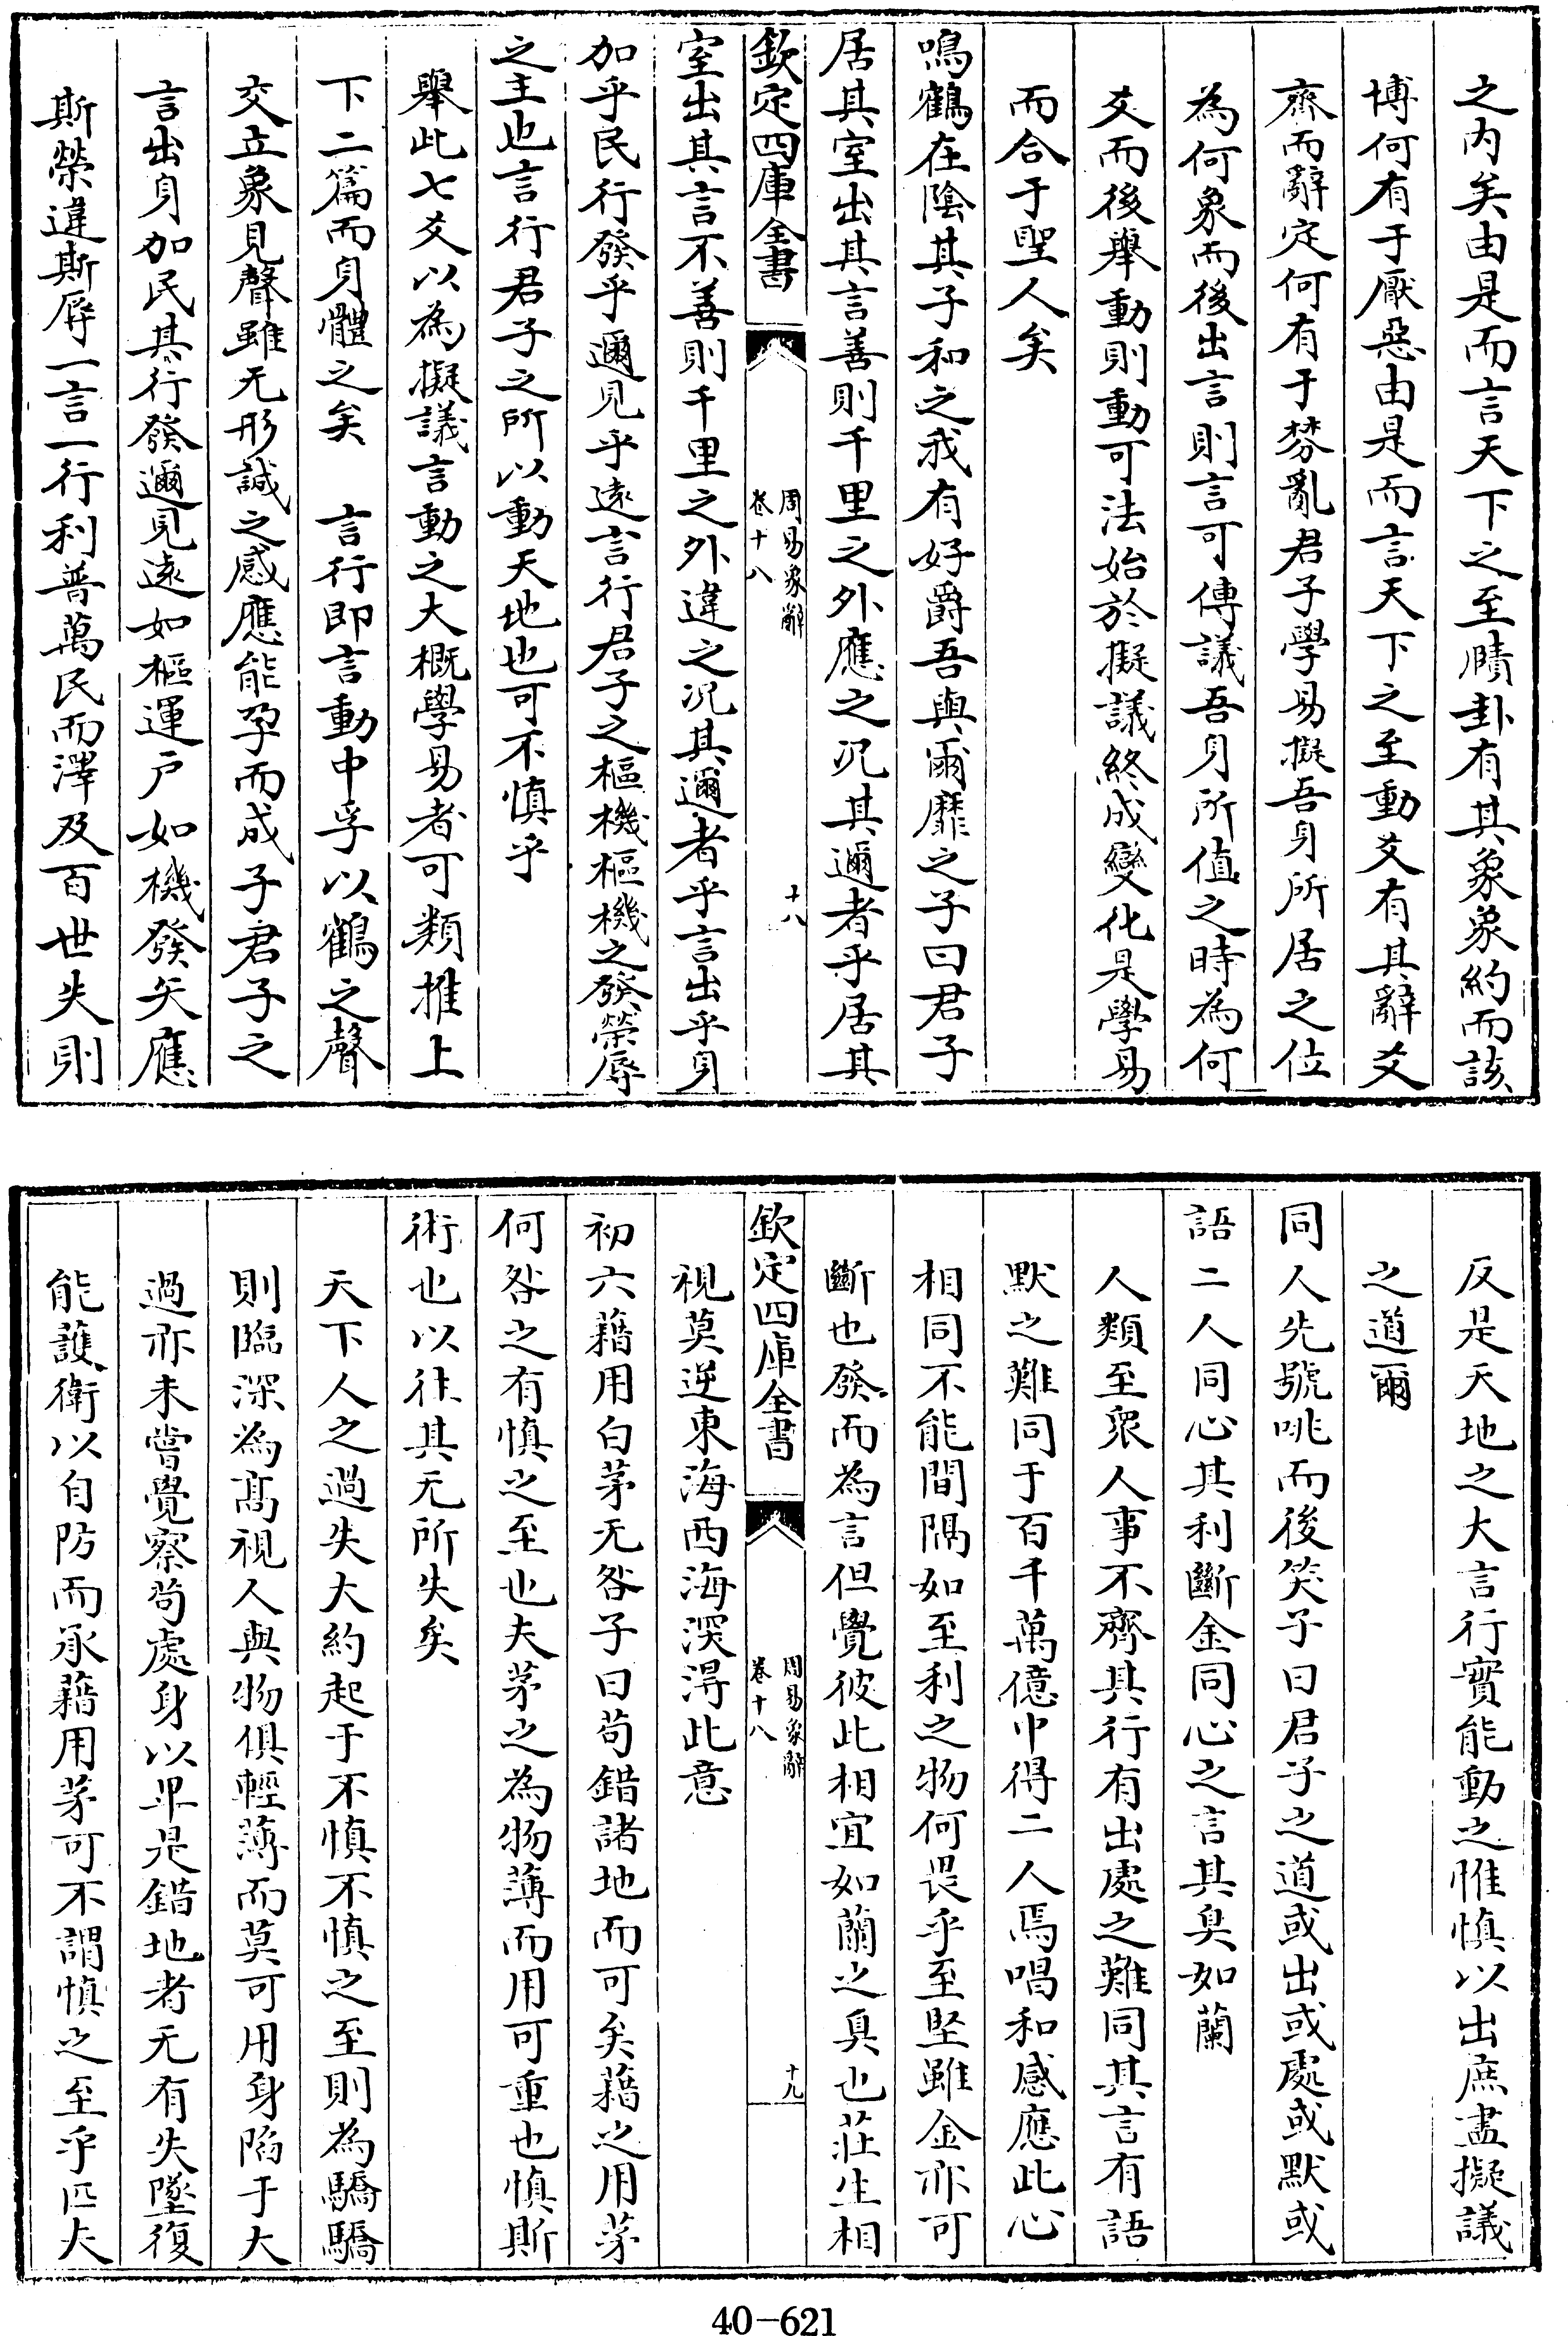 之内矣由是而言天下之至賾卦有其象象約而該
博何有于厭惡由是而言天下之至動爻有其辭爻
齊而辭定何有于棼亂君子學易擬吾身所居之位
為何象而後出言則言可傳議吾身所值之時為何
爻而後舉動則動可法始於擬議終成變化是學易
而合于聖人矣
鳴鶴在陰其子和之我有好爵吾與爾靡之子曰君子
居其室出其言善則千里之外應之况其邇者乎居其
欽定四庫全書
周易象辭
卷十八
十八
室出其言不善則千里之外違之况其邇者乎言出乎身
加乎民行發乎邇見乎遠言行君子之樞機樞機之發榮辱
之主也言行君子之所以動天地也可不慎乎
舉此七爻以為擬議言動之大概學易者可類推上
下二篇而身體之矣　言行即言動中孚以鶴之聲
交立象見聲雖无形誠之感應能孕而成子君子之
言出身加民其行發邇見遠如樞運户如機發矢應
斯榮違斯辱一言一行利普萬民而澤及百世失則
反是天地之大言行實能動之惟慎以出庶盡擬議
之道爾
同人先號咷而後笑子曰君子之道或出或處或默或
語二人同心其利斷金同心之言其臭如蘭
人類至衆人事不齊其行有出處之難同其言有語
默之難同于百千萬億中得二人焉唱和感應此心
相同不能間隔如至利之物何畏乎至堅雖金亦可
斷也發而為言但覺彼此相宜如蘭之臭也莊生相
欽定四庫全書
周易象辭
卷十八
十九
視莫逆東海西海深得此意
初六藉用白茅无咎子曰苟錯諸地而可矣藉之用茅
何咎之有慎之至也夫茅之為物薄而用可重也慎斯
術也以往其无所失矣
天下人之過失大約起于不慎不慎之至則為驕驕
則臨深為髙視人與物俱輕薄而莫可用身陷于大
過亦未嘗覺察苟處身以卑是錯地者无有失墜復
能護衛以自防而承藉用茅可不謂慎之至乎匹夫
40-621